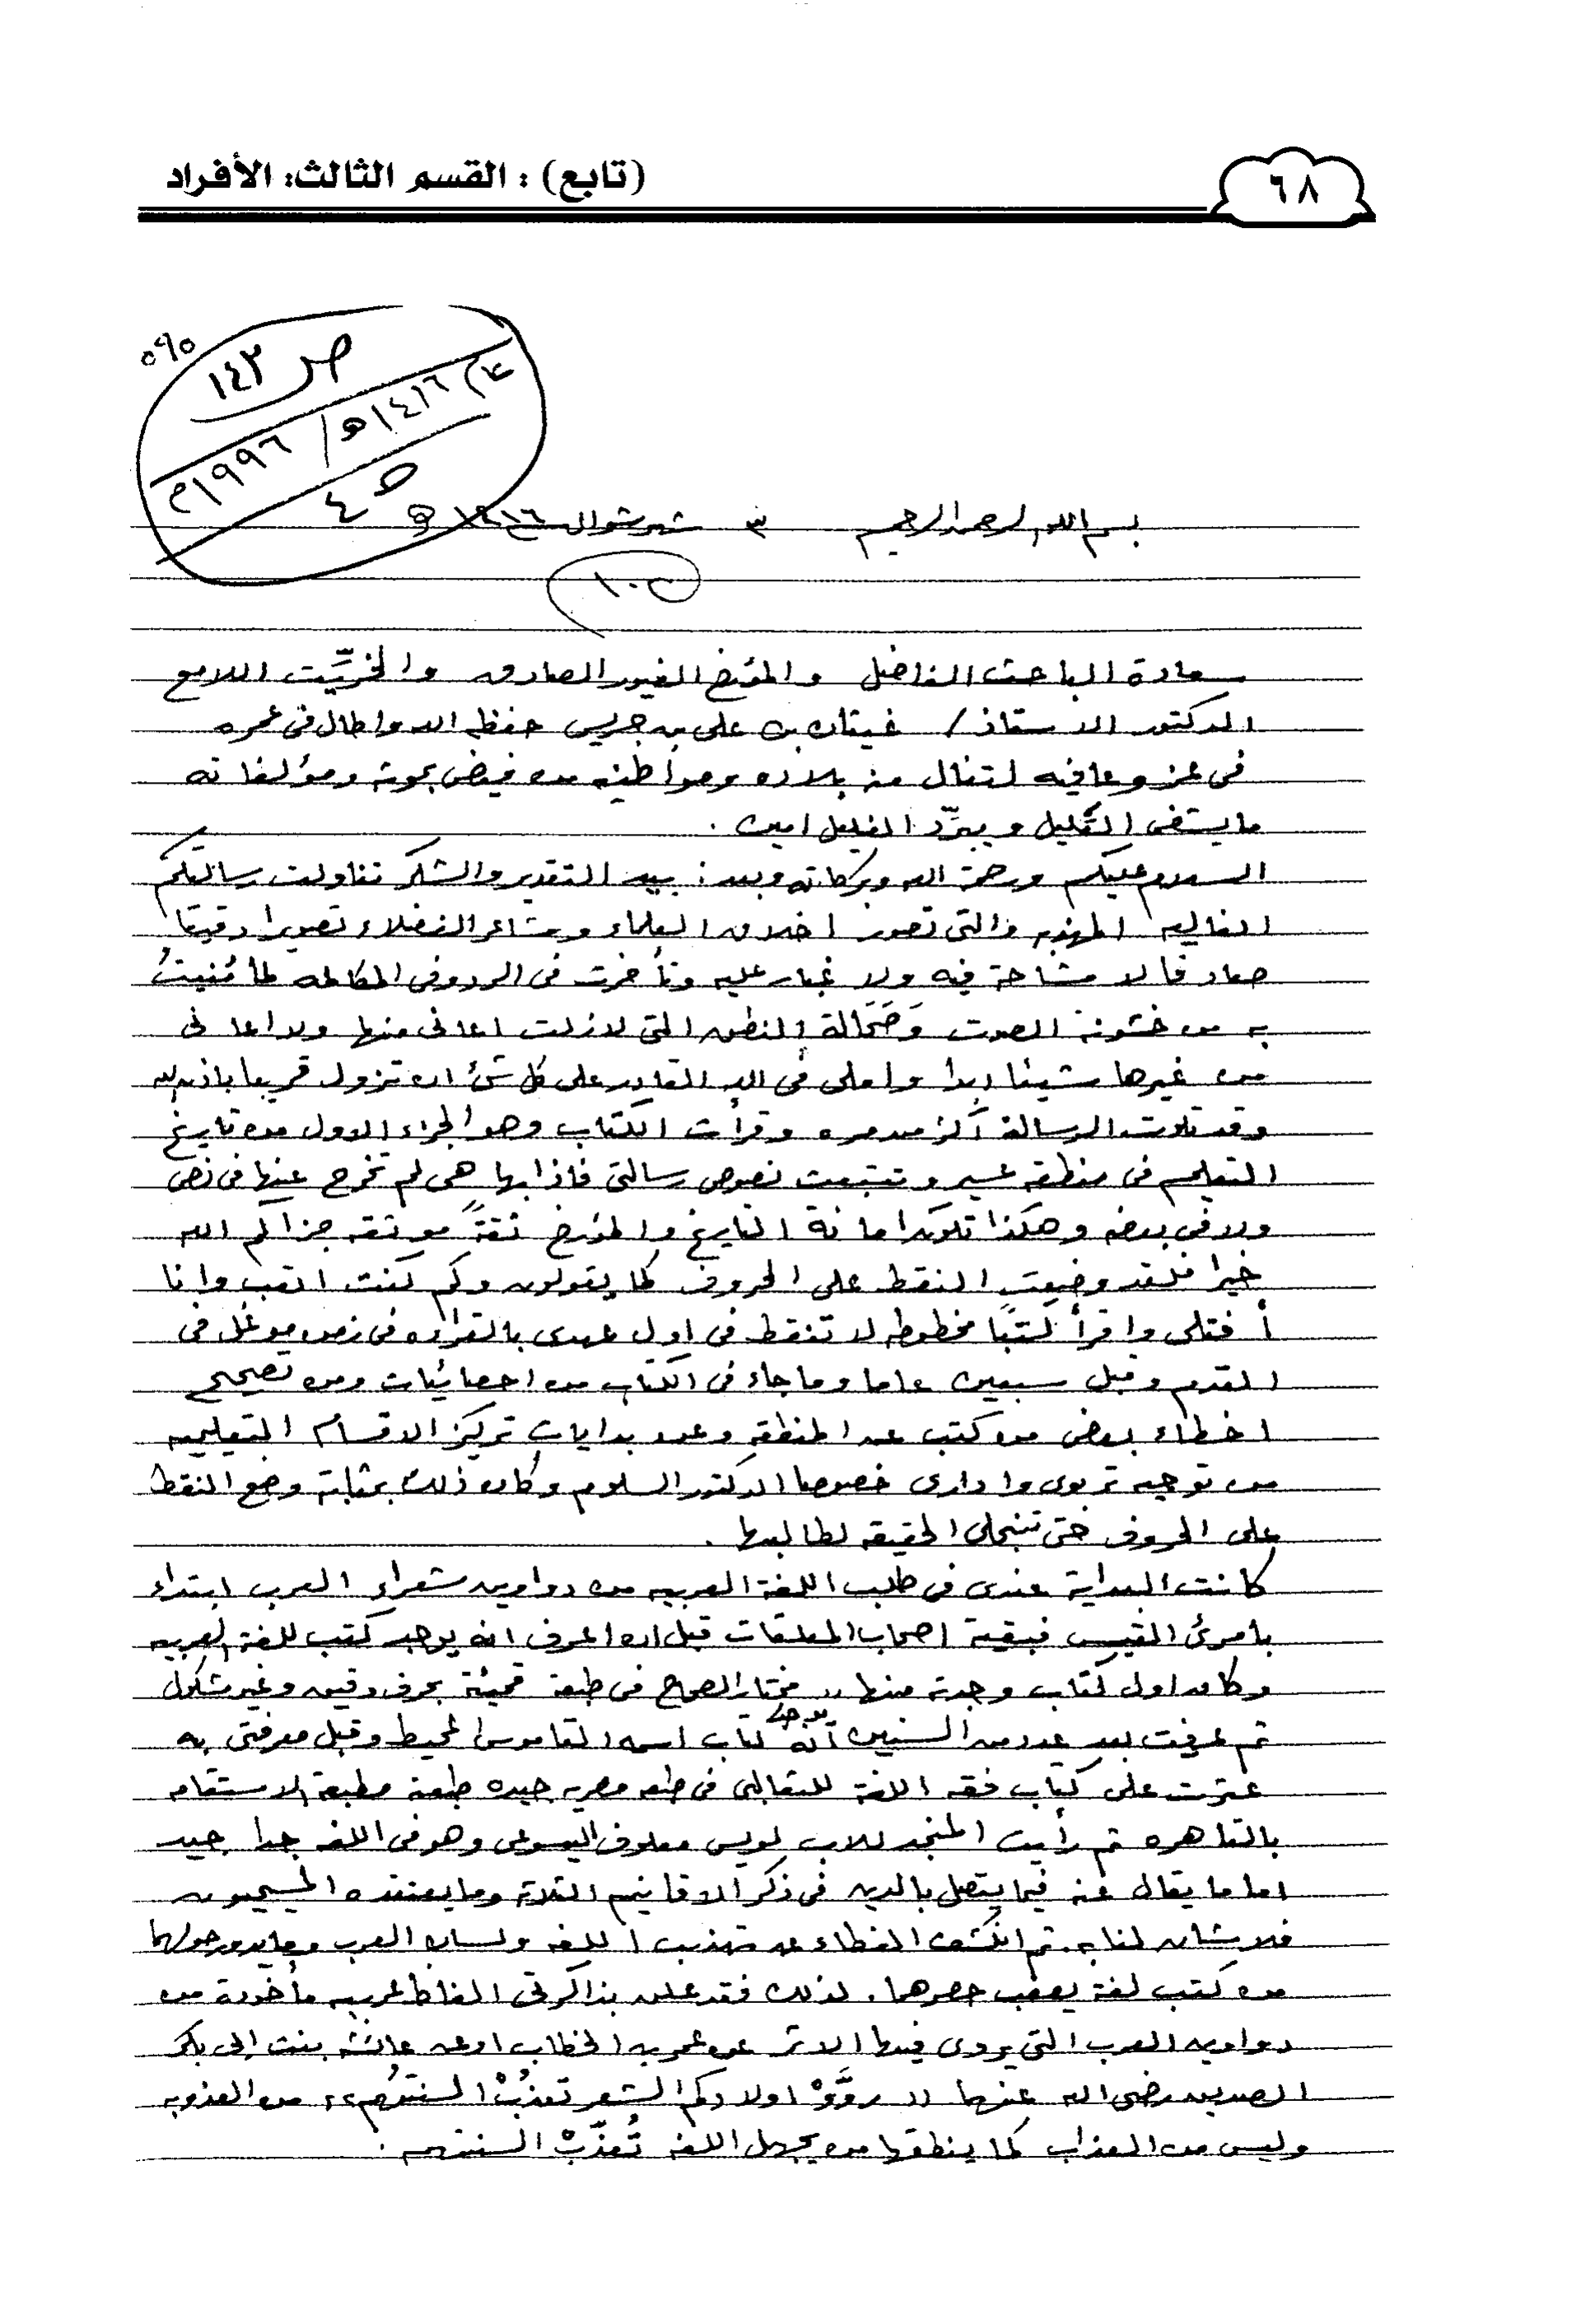 (تابع) : القسم الثالث: الأفراد
٦٨
٥٩٥
ص ١٤٢
عام ١٤١٦هـ / ١٩٩٦م
بسم الله الرحمن الرحيم ٣ شهر شوال ١٤١٦هـ
سعادة الباحث الفاضل والمؤرخ الغيور الصادق والخرِّيت اللامع
الدكتور الاستاذ / غيثان بن علي بن جريس حفظه الله واطال في عمره
في عز وعافيه لتنال منه بلاده ومواطنيه من فيض بحوثه ومؤلفاته
ما يشفى العليل ويبرّد الغليل امين .
السلام عليكم ورحمة الله وبركاته وبعد : بيد التقدير والشكر تناولت رسالتكم
الغاليه المهذبه والتى تصور اخلاق العلماء ومشاعر الفضلاء تصويرا دقيقا
صادقا لا مشاحة فيه ولا غبار عليه وتأخرت في الرد وفى المكالمه لما مُنيتُ
به من خشونة الصوت وضحالة النطق التى لازلت اعانى منها ولا اعانى
من غيرها شيئا ابدا واملى في الله القادر على كل شئ ان تزول قريبا باذن الله
وقد تلوت الرسالة اكثر من مره وقرأت الكتاب وهو الجزء الاول من تاريخ
التعليم فى منطقه عسير وتتبعت نصوص رسالتى فاذا بها هي لم تخرج عنها فى نص
ولا في بعضه وهكذا تكون امانة التاريخ والمؤرخ ثقةً موثقه جزاكم الله
خيرا فلقد وضعت النقط على الحروف كما يقولون وكم كنت اتعب وانا
أفتلى واقرأ كتبًا مخطوطه لا تنقط في اول عهدى بالقراءه فى زمن موغل فى
القدم وقبل سبعين عاما وما جاء فى الكتاب من احصائيات ومن تصحيح
اخطاء بعض من كتب عن المنطقه وعن بدايات تركيز الاقسام التعليميه
من توجيه تربوى وادارى خصوصا الدكتور السلوم وكان ذلك بمثابة وضع النقط
على الحروف حتى تنجلى الحقيقه لطالبها .
كانت البداية عندى فى طلب اللغة العربيه من دواوين شعراء العرب ابتداء
بامرئ القيس فبقية اصحاب المعلقات قبل ان اعرف انه يوجد كتب للغة العربيه
وكان اول كتاب وجدته منها ,, مختار الصحاح فى طبعة قميئة بحرف دقيق وغير مشكول
ثم عرفت بعد عدد من السنين أنه يوجد كتاب اسمه القاموس المحيط وقبل معرفتى به
عثرت على كتاب فقه اللغة للثعالبى فى طبعه مصريه جيده طبعة مطبعة الاستقامه
بالقاهره ثم رأيت المنجد للاب لويس معلوف اليسوعى وهو فى اللغه جدا جيد
اما ما يقال عنه فيما يتصل بالدين فى ذكر الاقانيم الثلاثة وما يعتقده المسيحيون
فلا شان لنا به. ثم انكشف الغطاء عن تهذيب اللغه ولسان العرب وما يدور حولهما
من كتب لغة يصعب حصرها. لذلك فقد علق بذاكرتى الفاظ عربيه مأخوذة من
دواوين العرب التى يروى فيها الاثر عن عمر بن الخطاب او عن عائشه بنت ابى بكر
الصديق رضى الله عنهما (( روُّوْا اولادكم الشعر تعذُبْ السنتُهم ,, من العذوبه
وليس من العذاب كما ينطقها من يجهل اللغه تُعذّبْ السنتهم .